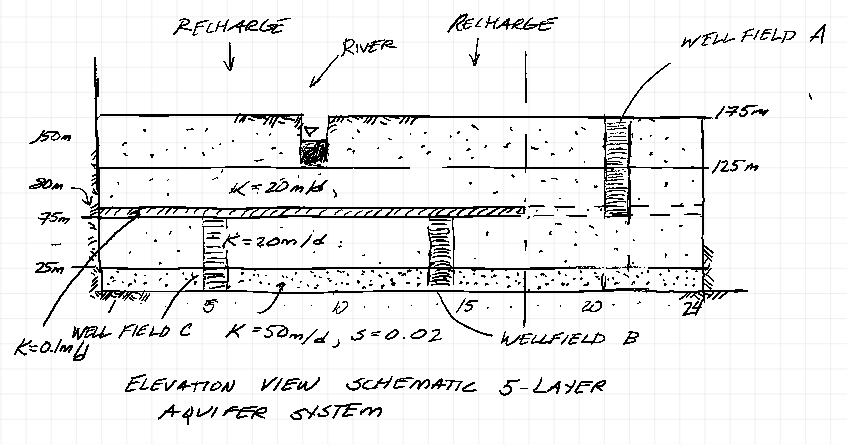 RECHARGE
RIVER
RECHARGE
WELL FIELD A
175m
150m
125m
80m
K=20m/d,
75m
K=20m/d.
25m
1 5 10 15 20 24
K=0.1m/d
WELL FIELD C
K=50m/d, S=0.02
WELLFIELD B
ELEVATION VIEW SCHEMATIC 5-LAYER
AQUIFER SYSTEM